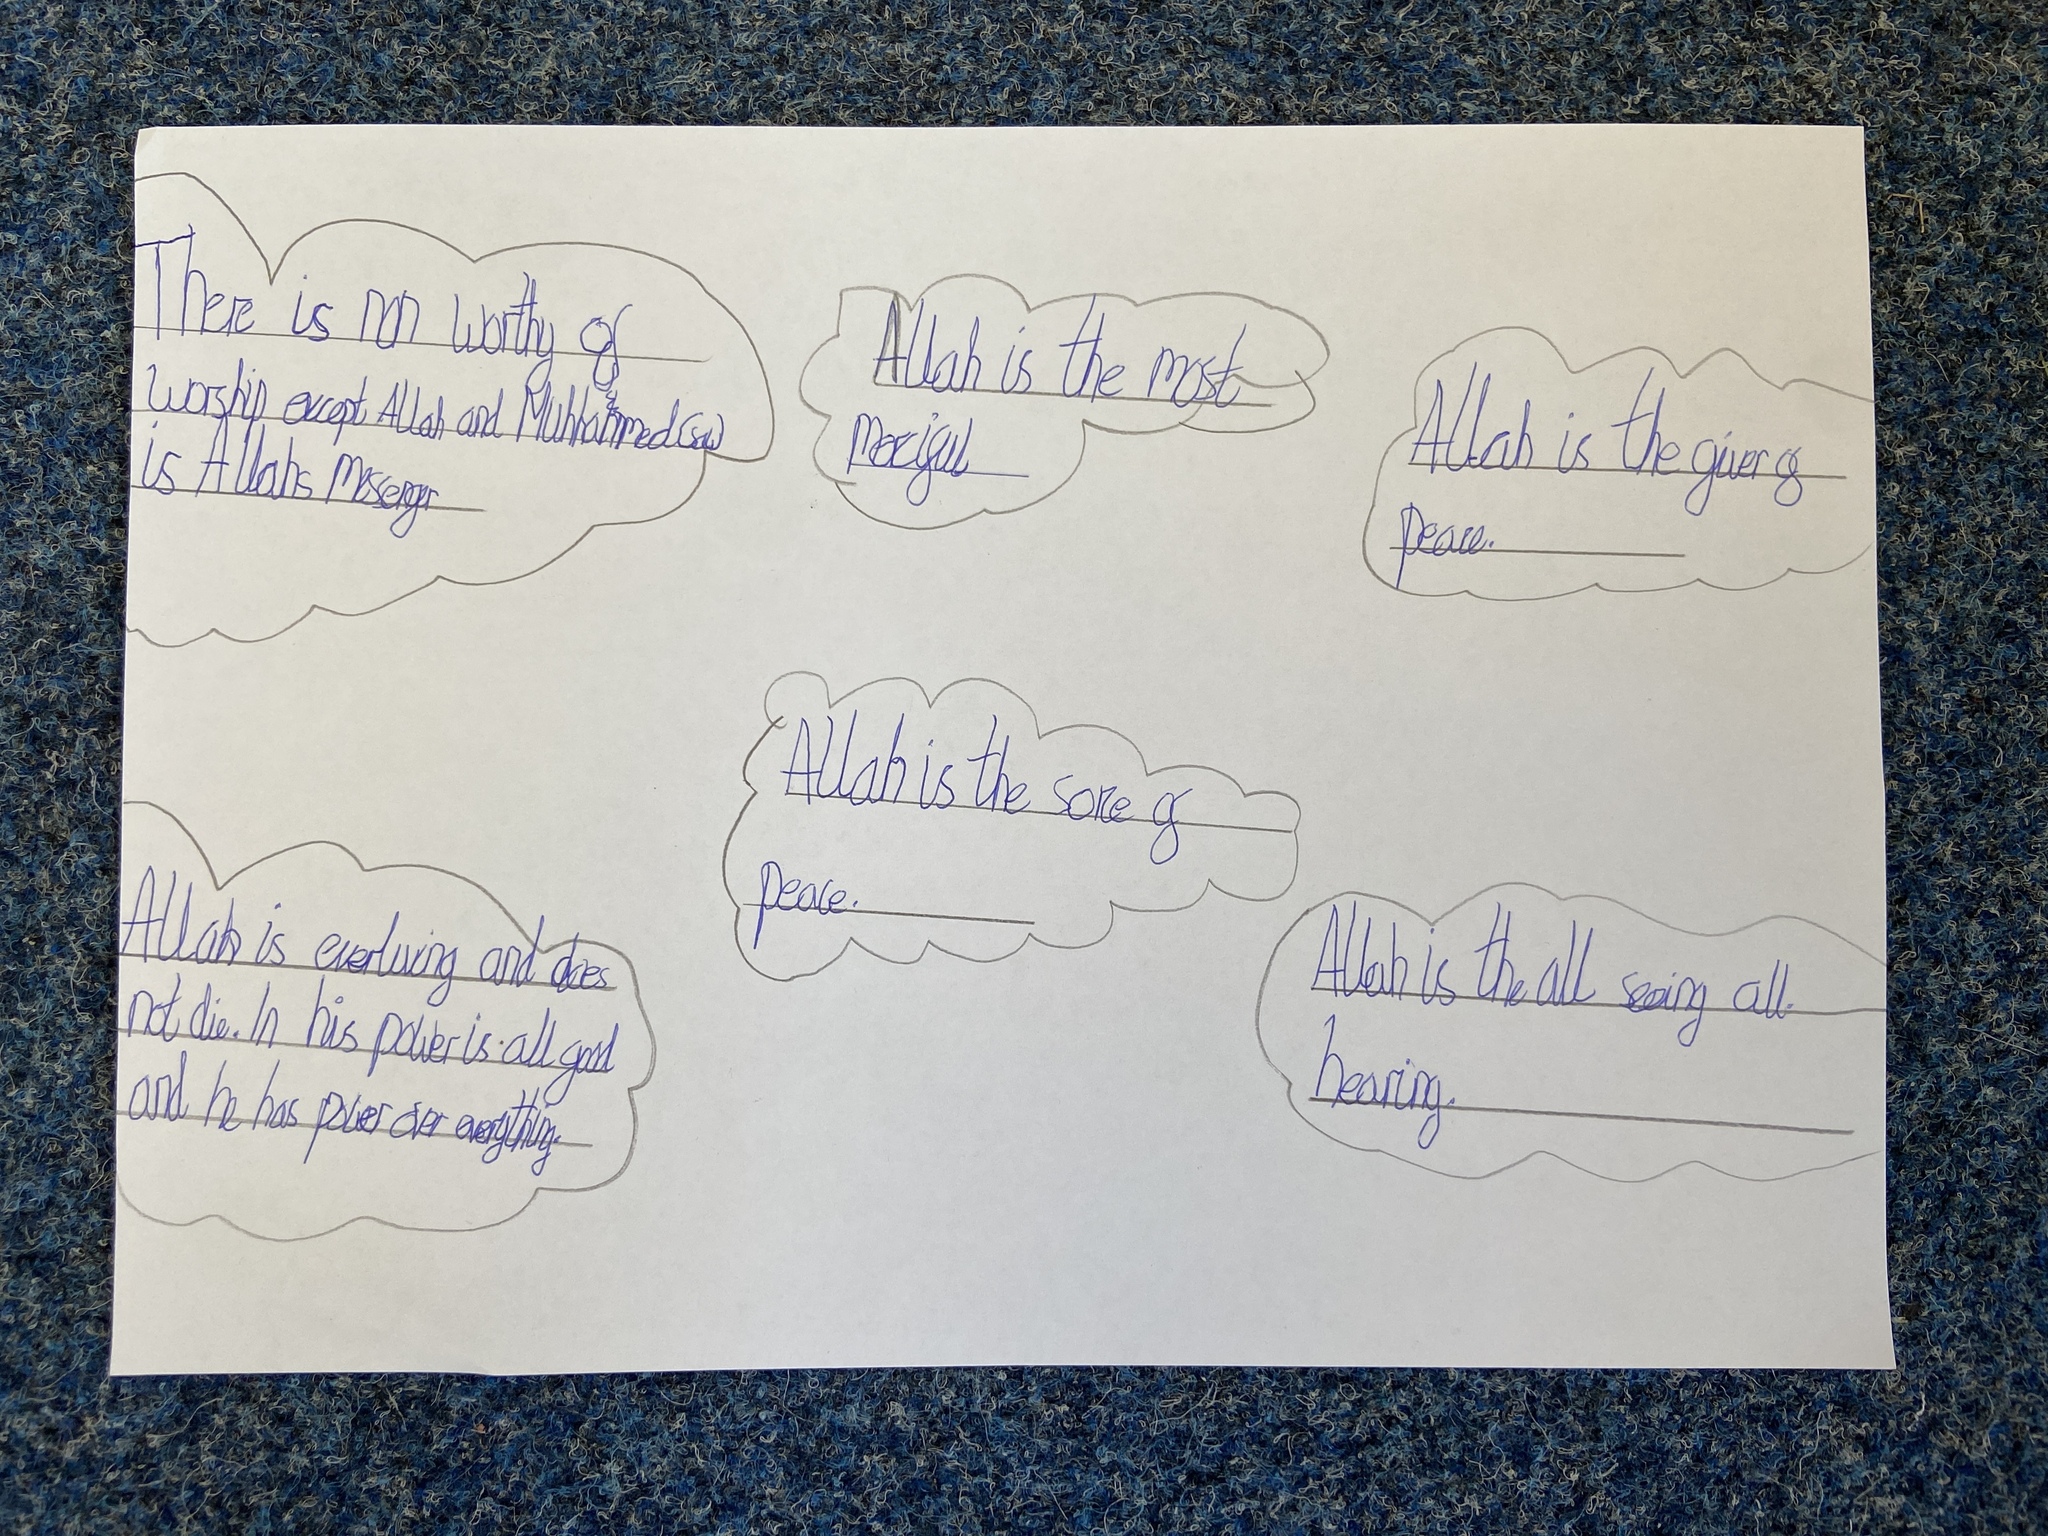 There is non worthy of
worship except Allah and Muhhahmmed (saw)
is Allahs Messenger
Allah is the most
merciful
Allah is the giver of
peace.
Allah is the sorce of
peace.
Allah is everluving and does
not die. In his power is all good
and he has power over everything.
Allah is the all seeing all
hearing.